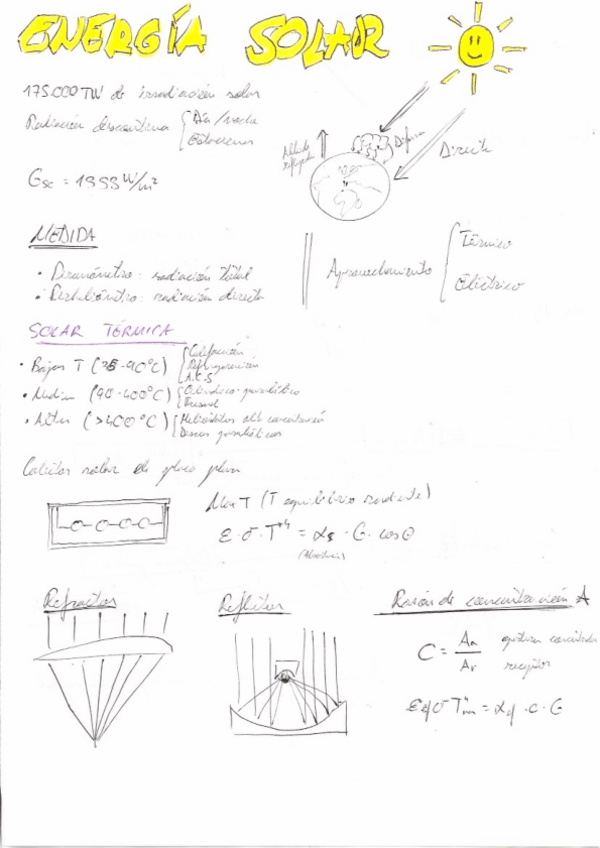 ENERGÍA SOLAR
175.000 TW de irradiación solar
Radiación discontinua { Día/noche
Estaciones
Albedo
reflejado
Difusa
Directa
Gsc = 1353 W/m²
MEDIDA
• Piranómetro: radiación total
• Pirheliómetro: radiación directa
Aprovechamiento { Térmico
Eléctrico
SOLAR TÉRMICA
• Bajas T (35-90°C) { Calefacción
Refrigeración
A.C.S
• Medias (90-400°C) { Cilindro-parabólico
Fresnel
• Altas (>400°C) { Heliostatos alta concentración
Discos parabólicos
Colector solar de placa plana
Max T (T equilibrio radiante)
ε · σ · T⁴ = αs · G · cosθ
Refractor
Reflector
Razón de concentración
C = Aa / Ar
apertura
receptor